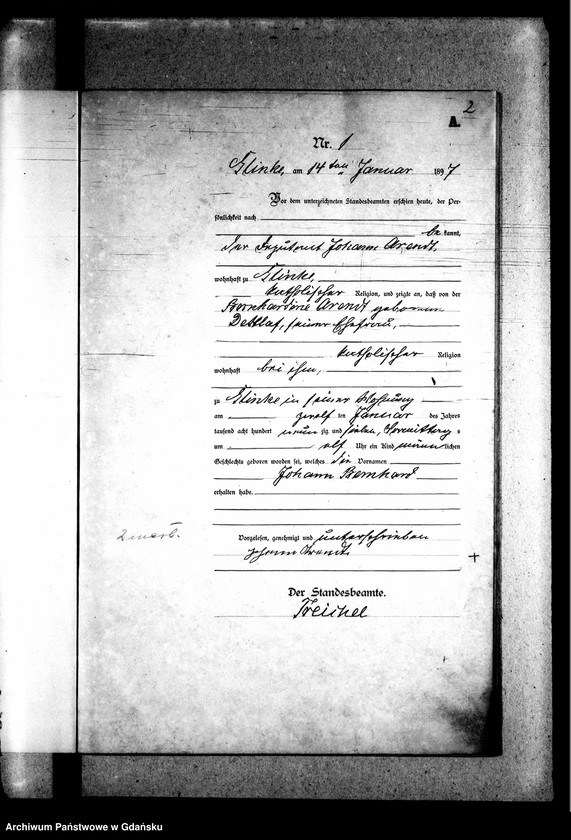 2
A.
Nr. 1
Glinke, am 14 ten Januar 1897
Vor dem unterzeichneten Standesbeamten erschien heute, der Per-
sönlichkeit nach
bekannt,
der Deputant Johann Arendt,
wohnhaft zu Glinke,
katholischer Religion, und zeigte an, daß von der
Bernhardine Arendt geborenen
Detlaf, seiner Ehefrau,
katholischer Religion
wohnhaft bei ihm,
zu Glinke in seiner Wohnung
am zwölf ten Januar des Jahres
tausend acht hundert neun zig und sieben, Vormittag s
um elf Uhr ein Kind männlichen
Geschlechts geboren worden sei, welches die Vornamen
Johann Bernhard
erhalten habe.
Vorgelesen, genehmigt und unterschrieben
Johann Arendt
Der Standesbeamte.
Treichel
Archiwum Państwowe w Gdańsku